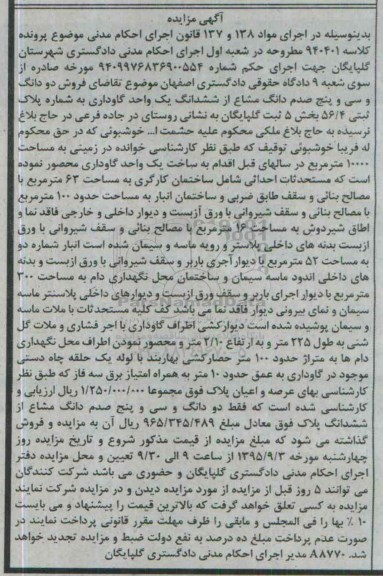 آگهی مزایده
بدینوسیله در اجرای مواد ۱۳۸ و ۱۳۷ قانون اجرای احکام مدنی موضوع پرونده
کلاسه ۹۴۰۴۰۱ مطروحه در شعبه اول اجرای احکام مدنی دادگستری شهرستان
گلپایگان جهت اجرای حکم شماره ۹۴۰۹۹۷۶۸۳۶۹۰۰۵۵۴ مورخه صادره از
سوی شعبه ۹ دادگاه حقوقی دادگستری اصفهان موضوع تقاضای فروش دو دانگ
و سی و پنج صدم دانگ مشاع از ششدانگ یک واحد گاوداری به شماره پلاک
ثبتی ۵۶/۴ بخش ۵ ثبت گلپایگان به نشانی روستای در جاده فرعی در حاج بلاغ
نرسیده به حاج بلاغ ملکی محکوم علیه حشمت ا... خوشبونی که در حق محکوم
له فریبا خوشبونی توقیف که طبق نظر کارشناسی خوانده در زمینی به مساحت
۱۰۰۰۰ مترمربع در سالهای قبل اقدام به ساخت یک واحد گاوداری محصور نموده
است که مستحدثات احداثی شامل ساختمان کارگری به مساحت ۶۳ مترمربع با
مصالح بنائی و سقف طابق ضربی و ساختمان انبار به مساحت حدود ۱۰۰ مترمربع
با مصالح بنائی و سقف شیروانی با ورق آزبست و دیوار داخلی و خارجی فاقد نما و
اطاق شیردوش به مساحت ۱۶ مترمربع با مصالح بنائی و سقف شیروانی با ورق
ازبست بدنه های داخلی پلاستر و رویه ماسه و سیمان شده است انبار شماره دو
به مساحت ۵۲ مترمربع با دیوار آجری باربر و سقف شیروانی با ورق ازبست و بدنه
های داخلی اندود ماسه سیمان و ساختمان محل نگهداری دام به مساحت ۳۰۰
مترمربع با دیوار اجرای باربر و سقف ورق ازبست و دیوارهای داخلی پلاستتر ماسه
سیمان و نمای بیرونی دیوار فاقد نما می باشد کف کلیه مستحدثات با ملات ماسه
و سیمان پوشیده شده است دیوارکشی اطراف گاوداری با اجر فشاری و ملات گل
شنی به طول ۲۲۵ متر و به ارتفاع ۲/۱۰ متر و محصور نمودن اطراف محل نگهداری
دام ها به متراژ حدود ۱۰۰ متر حصارکشی بهاربند با لوله یک حلقه چاه دستی
موجود در گاوداری به عمق حدود ۱۰ متر به همراه امتیاز برق سه فاز که طبق نظر
کارشناسی بهای عرصه و اعیان پلاک فوق مجموعا ۱/۲۵۰/۰۰۰/۰۰۰ ریال ارزیابی و
کارشناسی شده است که فقط دو دانگ و سی و پنج صدم دانگ مشاع از
ششدانگ پلاک فوق معادل مبلغ ۹۶۵/۳۴۵/۴۸۹ ریال آن به مزایده و فروش
گذاشته می شود که مبلغ مزایده از قیمت مذکور شروع و تاریخ مزایده روز
چهارشنبه مورخه ۱۳۹۵/۹/۳ از ساعت ۹ الی ۹/۳۰ تعیین و محل مزایده دفتر
اجرای احکام مدنی دادگستری گلپایگان و حضوری می باشد شرکت کنندگان
می توانند ۵ روز قبل از مزایده از مورد مزایده دیدن و در مزایده شرکت نمایند
مزایده به کسی تعلق خواهد گرفت که بالاترین قیمت را پیشنهاد و می بایست
۱۰ ٪ بها را فی المجلس و مابقی را ظرف مهلت مقرر قانونی پرداخت نمایند در
صورت عدم پرداخت مبلغ ده درصد به نفع دولت ضبط و مزایده تجدید خواهد
شد. ۸۸۷۷۰ مدیر اجرای احکام مدنی دادگستری گلپایگان